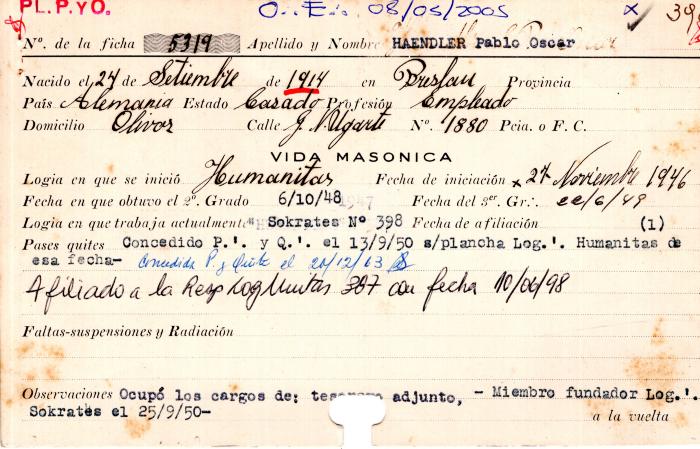 PL.P.yO. O.. E.. 08/05/2005 x 39
Nº. de la ficha 5319 Apellido y Nombre HAENDLER Pablo Oscar
Nacido el 24 de Setiembre de 1914 en Breslau Provincia
País Alemania Estado Casado Profesión Empleado
Domicilio Olivos Calle J. V. Ugarte Nº. 1880 Pcia. o F. C.
VIDA MASONICA
Logia en que se inició Humanitas Fecha de iniciación x 27 Noviembre 1946
Fecha en que obtuvo el 2º. Grado 6/10/48 Fecha del 3er. Gr∴. 22/6/49
Logia en que trabaja actualment. Sokrates Nº 398 Fecha de afiliación (1)
Pases quites Concedido P.'. y Q.'. el 13/9/50 s/plancha Log.'. Humanitas de
esa fecha- Concedida P. y Quite el 20/12/63
Afiliado a la Resp Log Unitas 387 con fecha 10/06/98
Faltas-suspensiones y Radiación
Observaciones Ocupó los cargos de: tesorero adjunto, - Miembro fundador Log.'.
Sokrates el 25/9/50-
a la vuelta